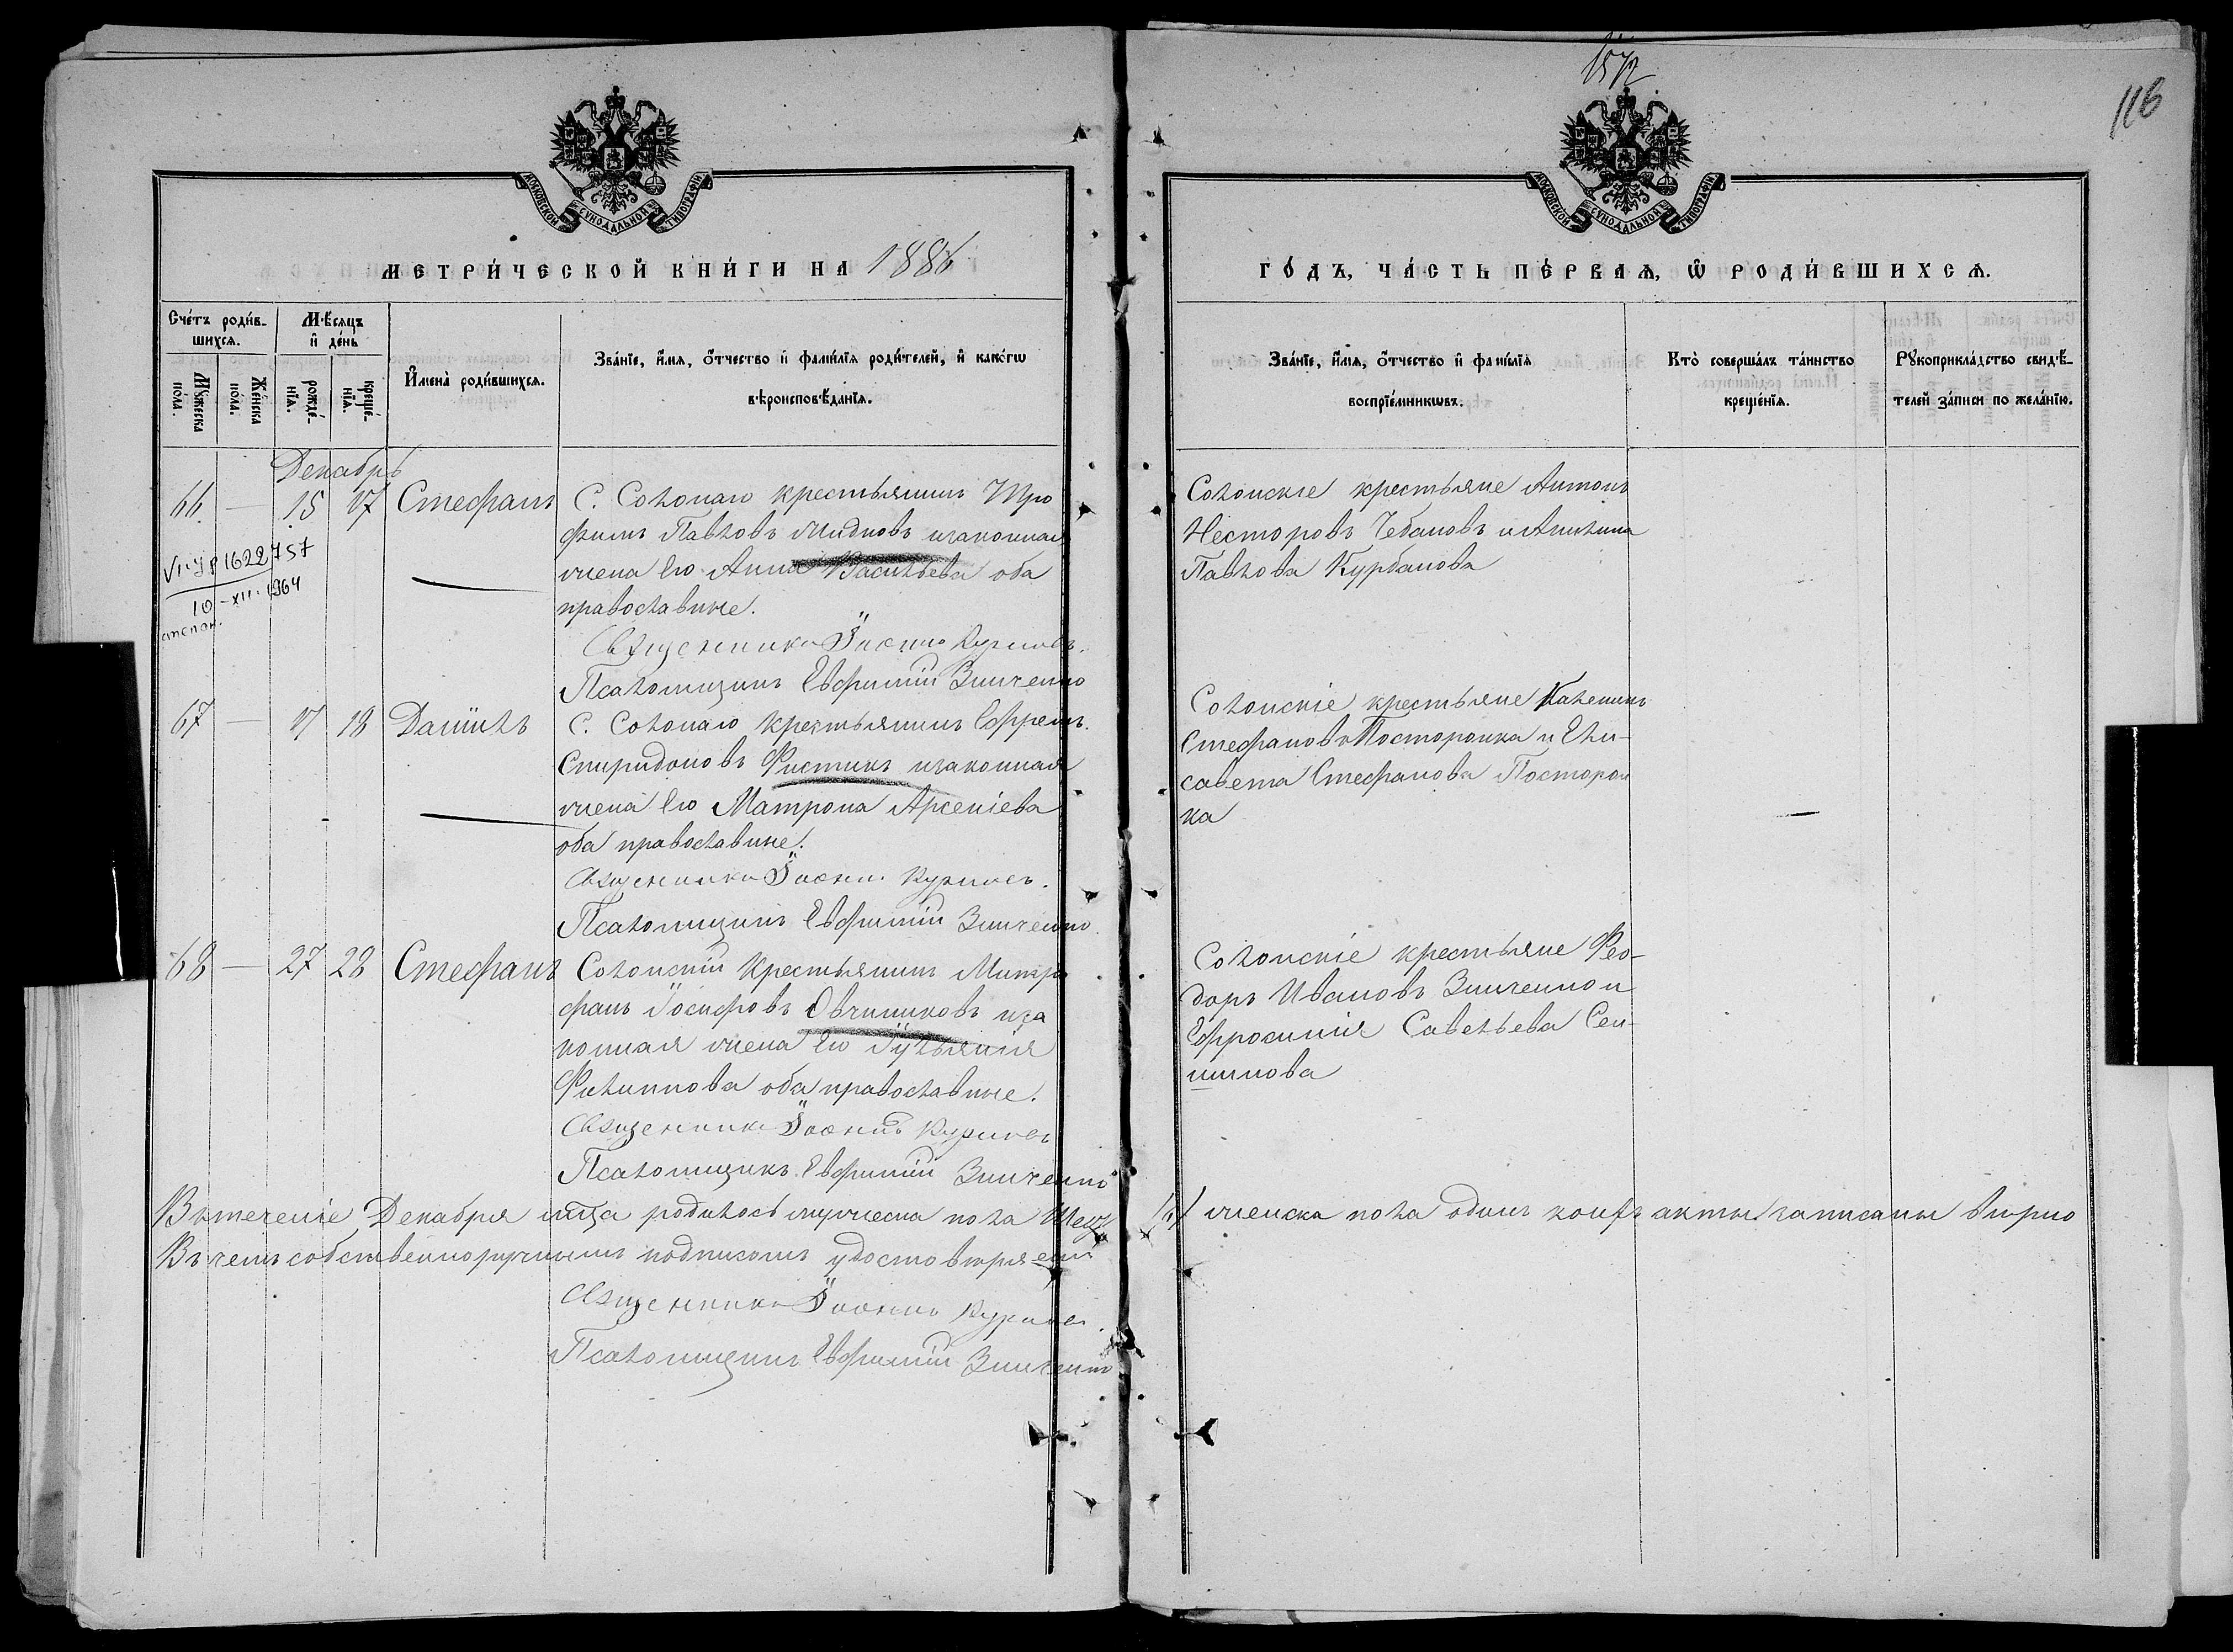 1572
116
МОСКОВСКОЙ СѴНОДАЛЬНОЙ ТИПОГРАФІИ
МОСКОВСКОЙ СѴНОДАЛЬНОЙ ТИПОГРАФІИ
МЕТРИ́ЧЕСКОЙ КНИ́ГИ НА 1886
ГО́ДЪ, ЧА́СТЬ ПЕ́РВАѦ, Ѡ҆ РОДИ́ВШИХСѦ.
Сче́тъ роди́в-
шихсѧ.
Мꙋ́жеска по́ла.
Же́нска по́ла.
Мѣ́сѧцъ и҆ де́нь
рожде́-нїѧ.
креще́-нїѧ.
И҆мена̀ роди́вшихсѧ.
Зва́нїе, и҆́мѧ, ѻ҆́тчество и҆ фамѝлїѧ роди́телей, и҆ како́гѡ
вѣроисповѣ́данїѧ.
Зва́нїе, и҆́мѧ, ѻ҆́тчество и҆ фамѝлїѧ
воспрїе́мникѡвъ.
Кто̀ соверша́лъ та́инство
креще́нїѧ.
Рꙋкоприкла́дство свидѣ́-
телей за́писи по жела́нїю.
Декабрь
66 — 15 17 Стефанъ С. Солонаго крестьянинъ Тро
фимъ Павловъ изаконная
жена его Анна Васильева оба
православные.
Священникъ Іоаннъ
Псаломщикъ Евфимій Зинченко
1622757
10-XII-1964
степан.
Солонскіе крестьяне Антонъ
Несторовъ Чебановъ и Акилина
Павлова Курбанова
67 — 17 18 Даніилъ С. Солонаго крестьянинъ Ефремъ
Спиридоновъ Фистикъ изаконная
жена его Матрона Арсеніева
оба православные.
Священникъ Іоаннъ
Псаломщикъ Евфимій Зинченко.
Солонскіе крестьяне Калиникъ
Стефановъ Посторонка и Ели-
савета Стефанова Посторон
ка
68 — 27 28 Стефанъ Солонскій крестьянинъ Митро
фанъ Іосифовъ Овчинниковъ иза
конная жена его Іуліянія
Филиппова оба православные.
Священникъ Іоаннъ
Псаломщикъ Евфимій Зинченко
Солонскіе крестьяне Фео-
доръ Ивановъ Зинченко и
Ефросинія Савельева Сен-
шинова
Въ теченіе Декабря мца родилось мужеска пола женска пола одинъ коихъ акты записаны вѣрно
Въ чемъ собственноручнымъ подписомъ удостовѣряемъ
Священникъ Іоаннъ
Псаломщикъ Евфимій Зинченко